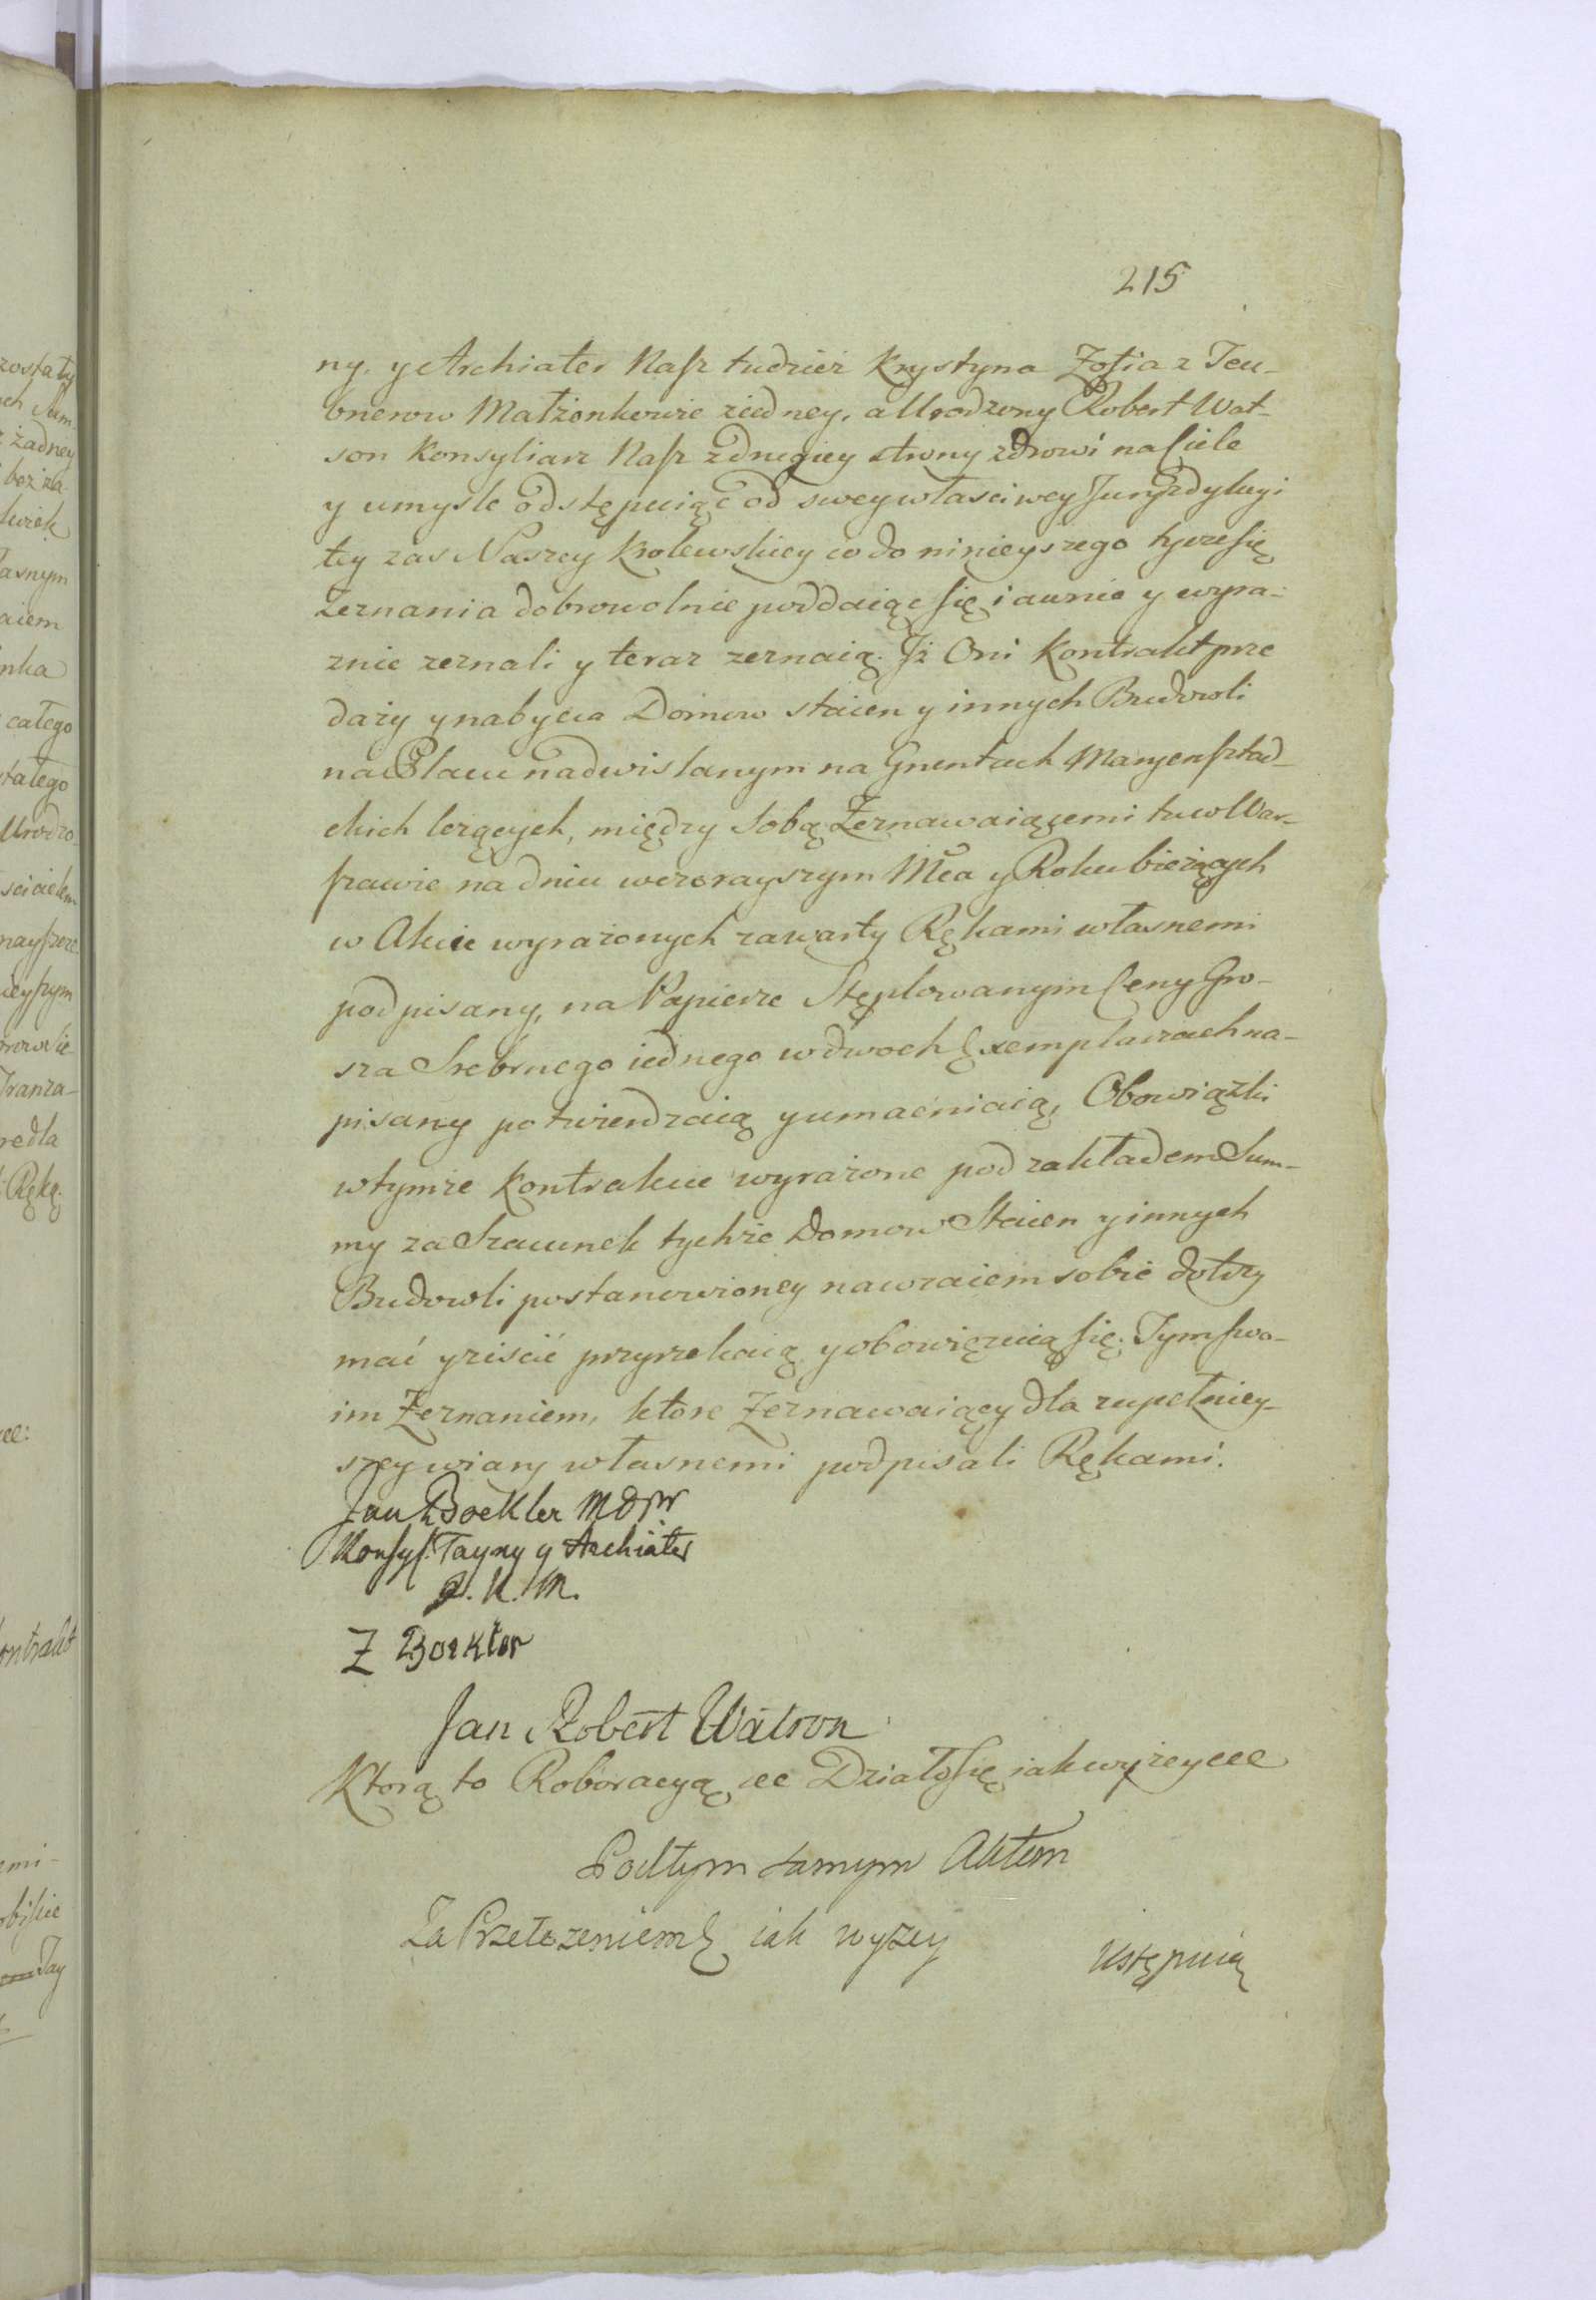 215
ny. y Archiater Nasz tudzież Krystyna Zofia z Teu-
bnerow Małżonkowie ziedney, a Urodzony Robert Wat-
son Konsyliarz Nasz zdrugiey strony zdrowi na Ciele
y umyśle odstępuiąc od swey własciwey Juryzdykcyi
tey zas Naszey Krolewskiey co do ninieyszego tycze się
zeznania dobrowolnie poddaiąc się iawnie y wyra-
znie zeznali y teraz zeznaią. Jż Oni Kontrakt prze
daży y nabycia Domow staien y innych Budowli
na Placu nadwislanym na Gruntach Maryensztad-
ckich leżących, między Sobą Zeznawaiącemi tu w War-
szawie na dniu wczorayszym Mca y Roku bieżących
w Akcie wyrażonych zawarty Rękami własnemi
podpisany, na Papierze Stęplowanym Ceny Gro-
sza Srebrnego iednego w dwoch Exemplarzach na-
pisany potwierdzaią y umacniaią, Obowiązki
w tymże Kontrakcie wyrażone pod zakładem Sum-
my za Szacunek tychże Domow Staien y innych
Budowli postanowioney nawzaiem sobie dotrzy
mać y ziscić przyrzekaią y obowięzuią się. Tym swo-
im Zeznaniem, ktore Zeznawaiący dla zupełniey-
szey wiary własnemi podpisali Rękami.
Jan Boekler MD
Konsyl: Tayny y Archiater
J. K. M.
Z Boekler
Jan Robert Watson
Ktorą to Roboracyą &c Działo się iak wyżey &c
Pod tym samym Aktem
Za Przełożeniem &c iak wyżey
Ustępuią
zostały
żadney
bez
asnym
aiem
całego
tałego
Urodzo
Rękę.
ontrakt